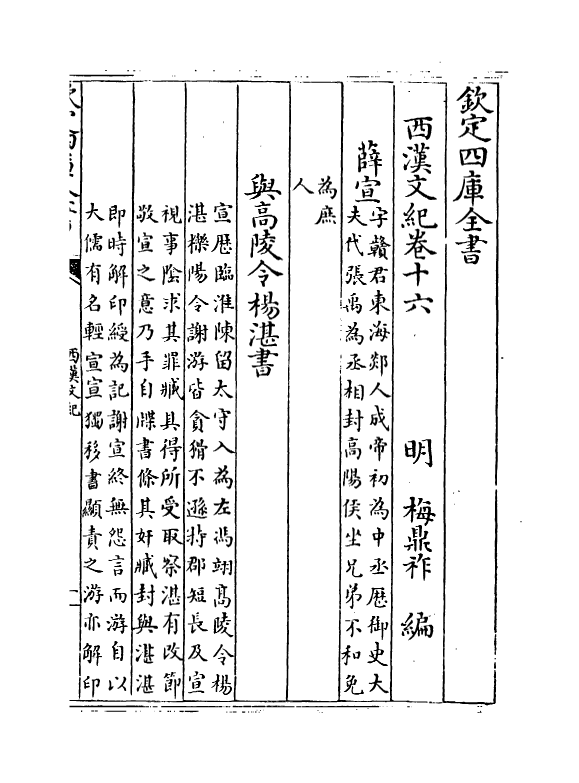 欽定四庫全書
西漢文紀卷十六
明 梅鼎祚 編
薛宣
字贛君東海郯人成帝初為中丞歷御史大
夫代張禹為丞相封高陽侯坐兄弟不和免
為庶
人
與高陵令楊湛書
宣歷臨淮陳留太守入為左馮翊高陵令楊
湛櫟陽令謝游皆貪猾不遜持郡短長及宣
視事陰求其罪臧具得所受取察湛有改節
敬宣之意乃手自牒書條其奸臧封與湛湛
即時解印綬為記謝宣終無怨言而游自以
大儒有名輕宣宣獨移書顯責之游亦解印
西漢文紀
一